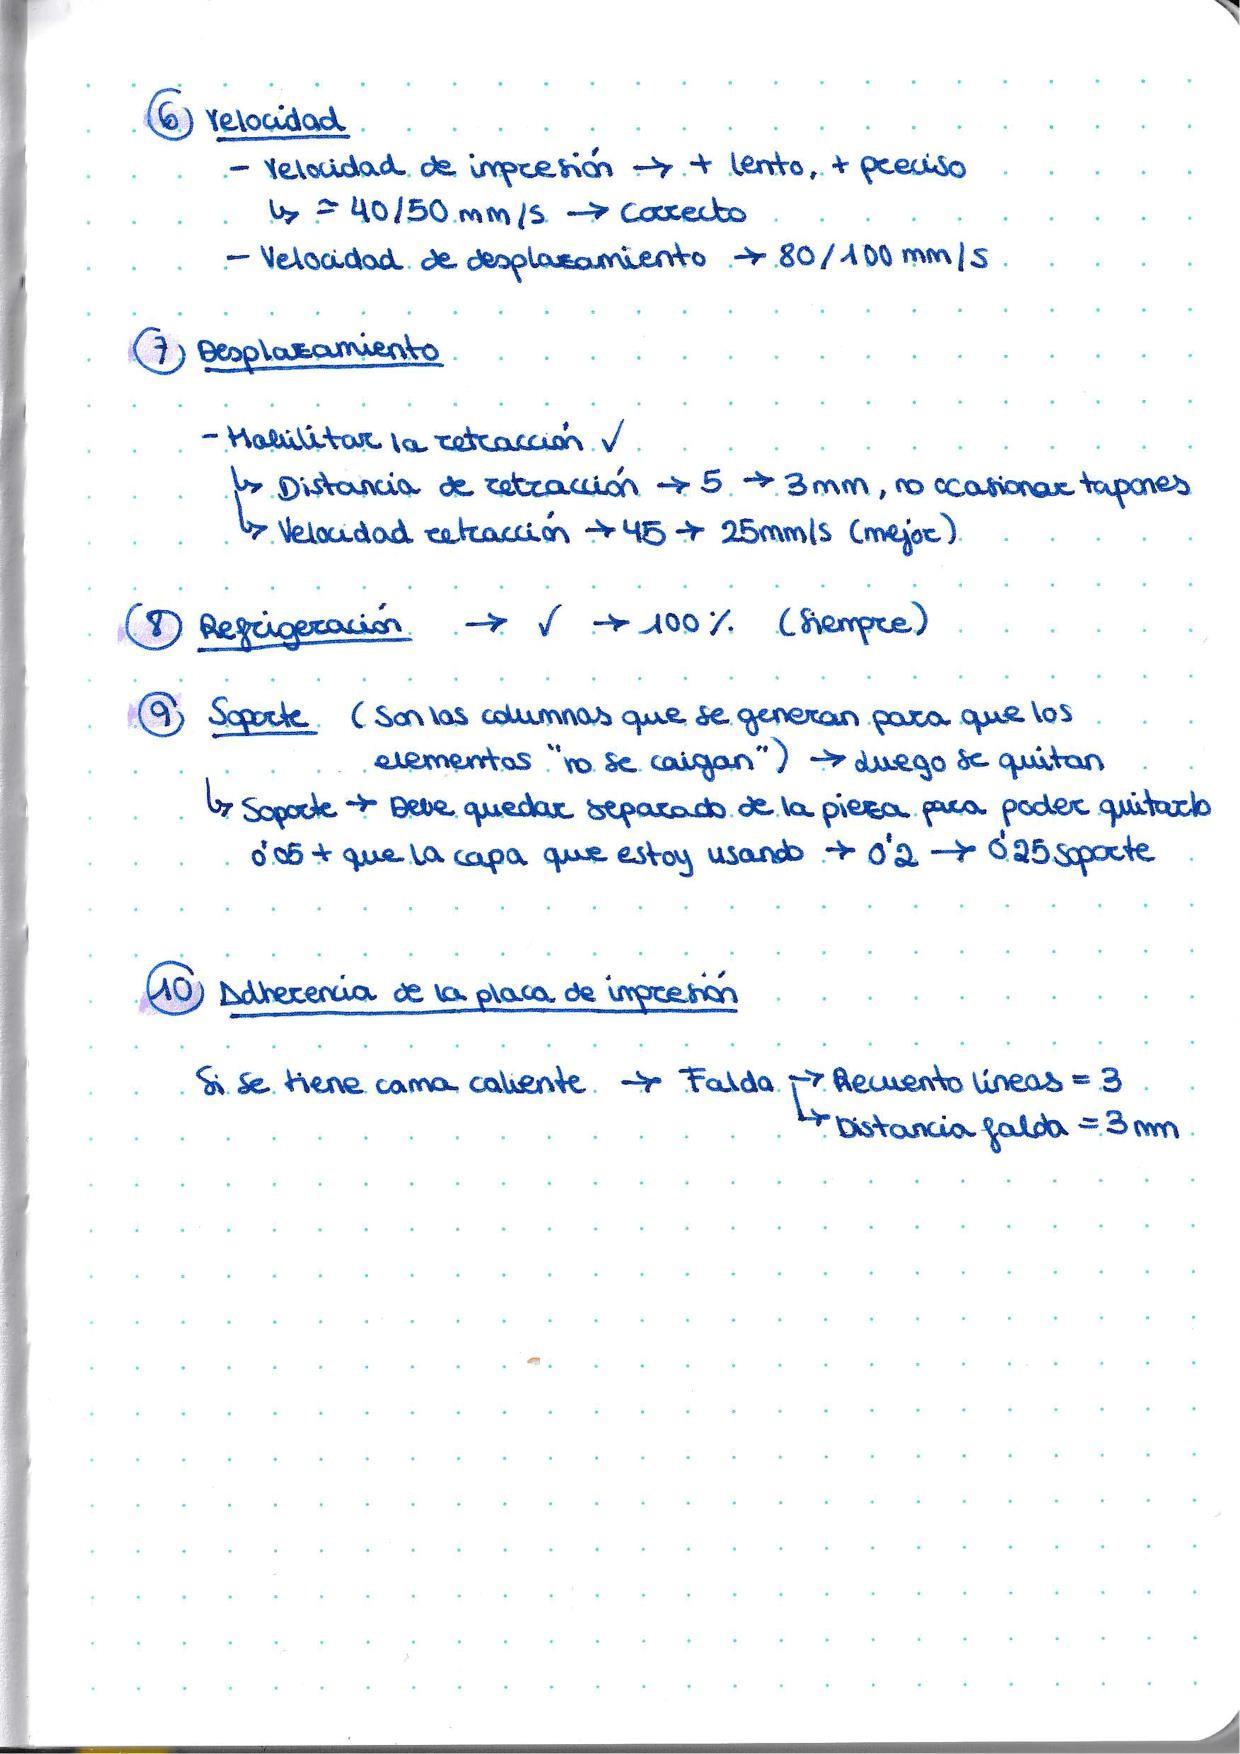 6 Velocidad
- Velocidad de impresión → + lento, + preciso
↳ ≃ 40/50 mm/s → Correcto
- Velocidad de desplazamiento → 80/100 mm/s
7 Desplazamiento
- Habilitar la retracción ✓
↳ Distancia de retracción → 5 → 3mm, no ocasionar tapones
↳ Velocidad retracción → 45 → 25mm/s (mejor)
8 Refrigeración → ✓ → 100% (Siempre)
9 Soporte (Son las columnas que se generan para que los
elementos "no se caigan") → Luego se quitan
↳ Soporte → Debe quedar separado de la pieza para poder quitarlo
0'05 + que la capa que estoy usando → 0'2 → 0'25 soporte
10 Adherencia de la placa de impresión
Si se tiene cama caliente → Falda → Recuento líneas = 3
↳ Distancia falda = 3 mm